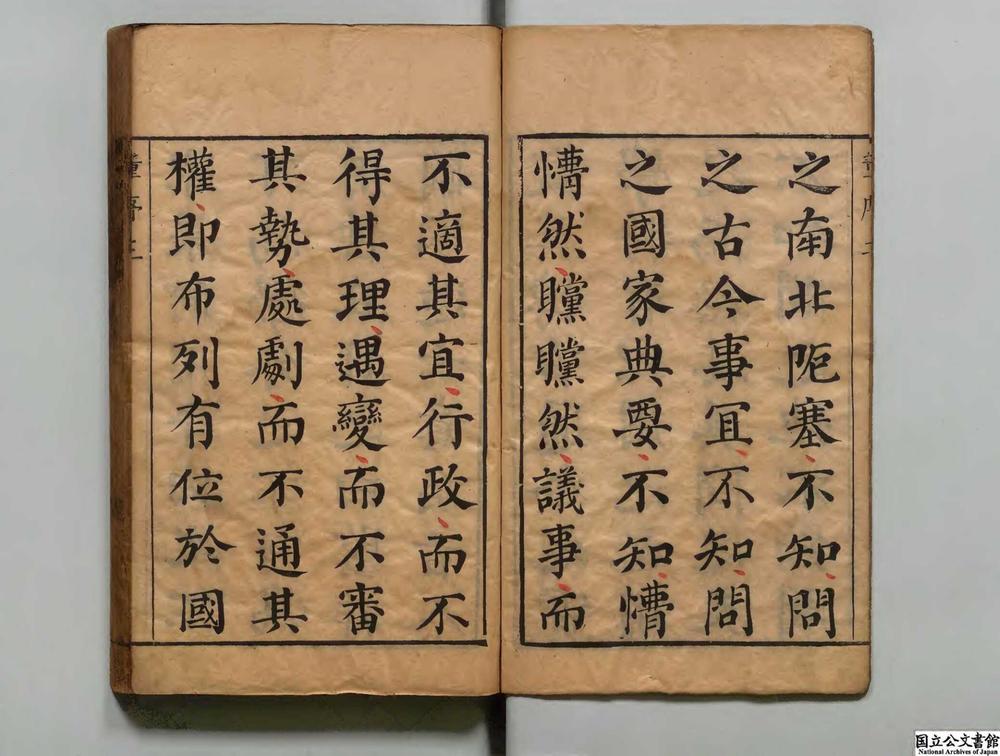 之南北阨塞不知問
之古今事冝不知問
之國家典要不知懵
懵然矘矘然議事而
不適其宜行政而不
得其理遇變而不審
其勢處劇而不通其
權即布列有位於國
国立公文書館
National Archives of Japan